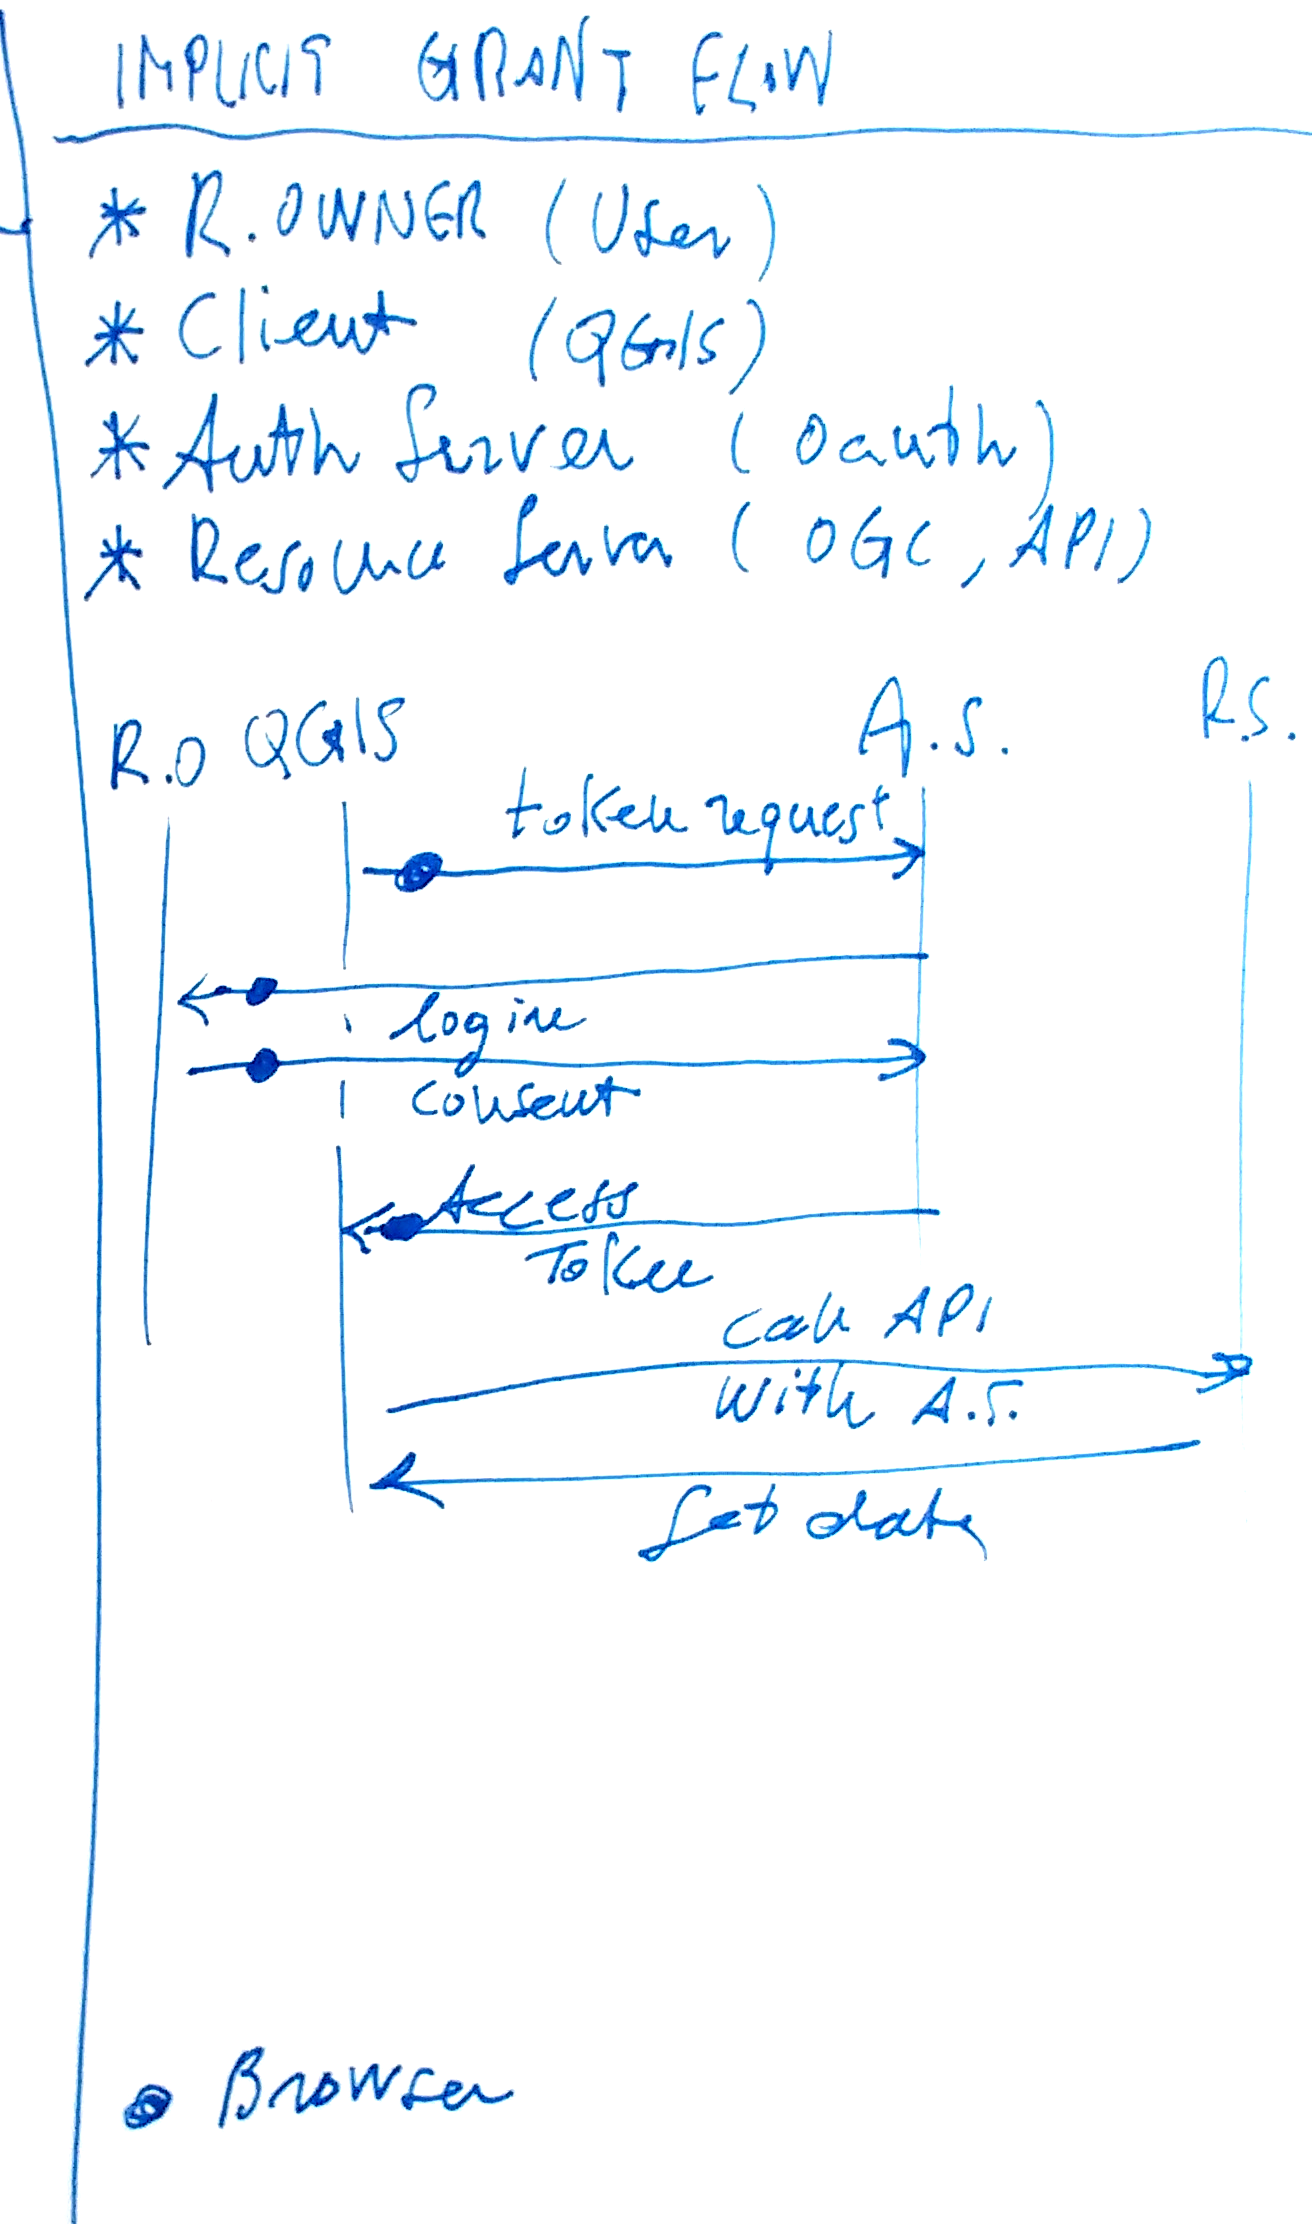 IMPLICIT GRANT FLOW
* R.OWNER (User)
* Client (QGIS)
* Auth Server (Oauth)
* Resource Server (OGC, API)
R.O QGIS A.S. R.S.
token request
login
consent
Access
Token
call API
with A.T.
Get data
• Browser